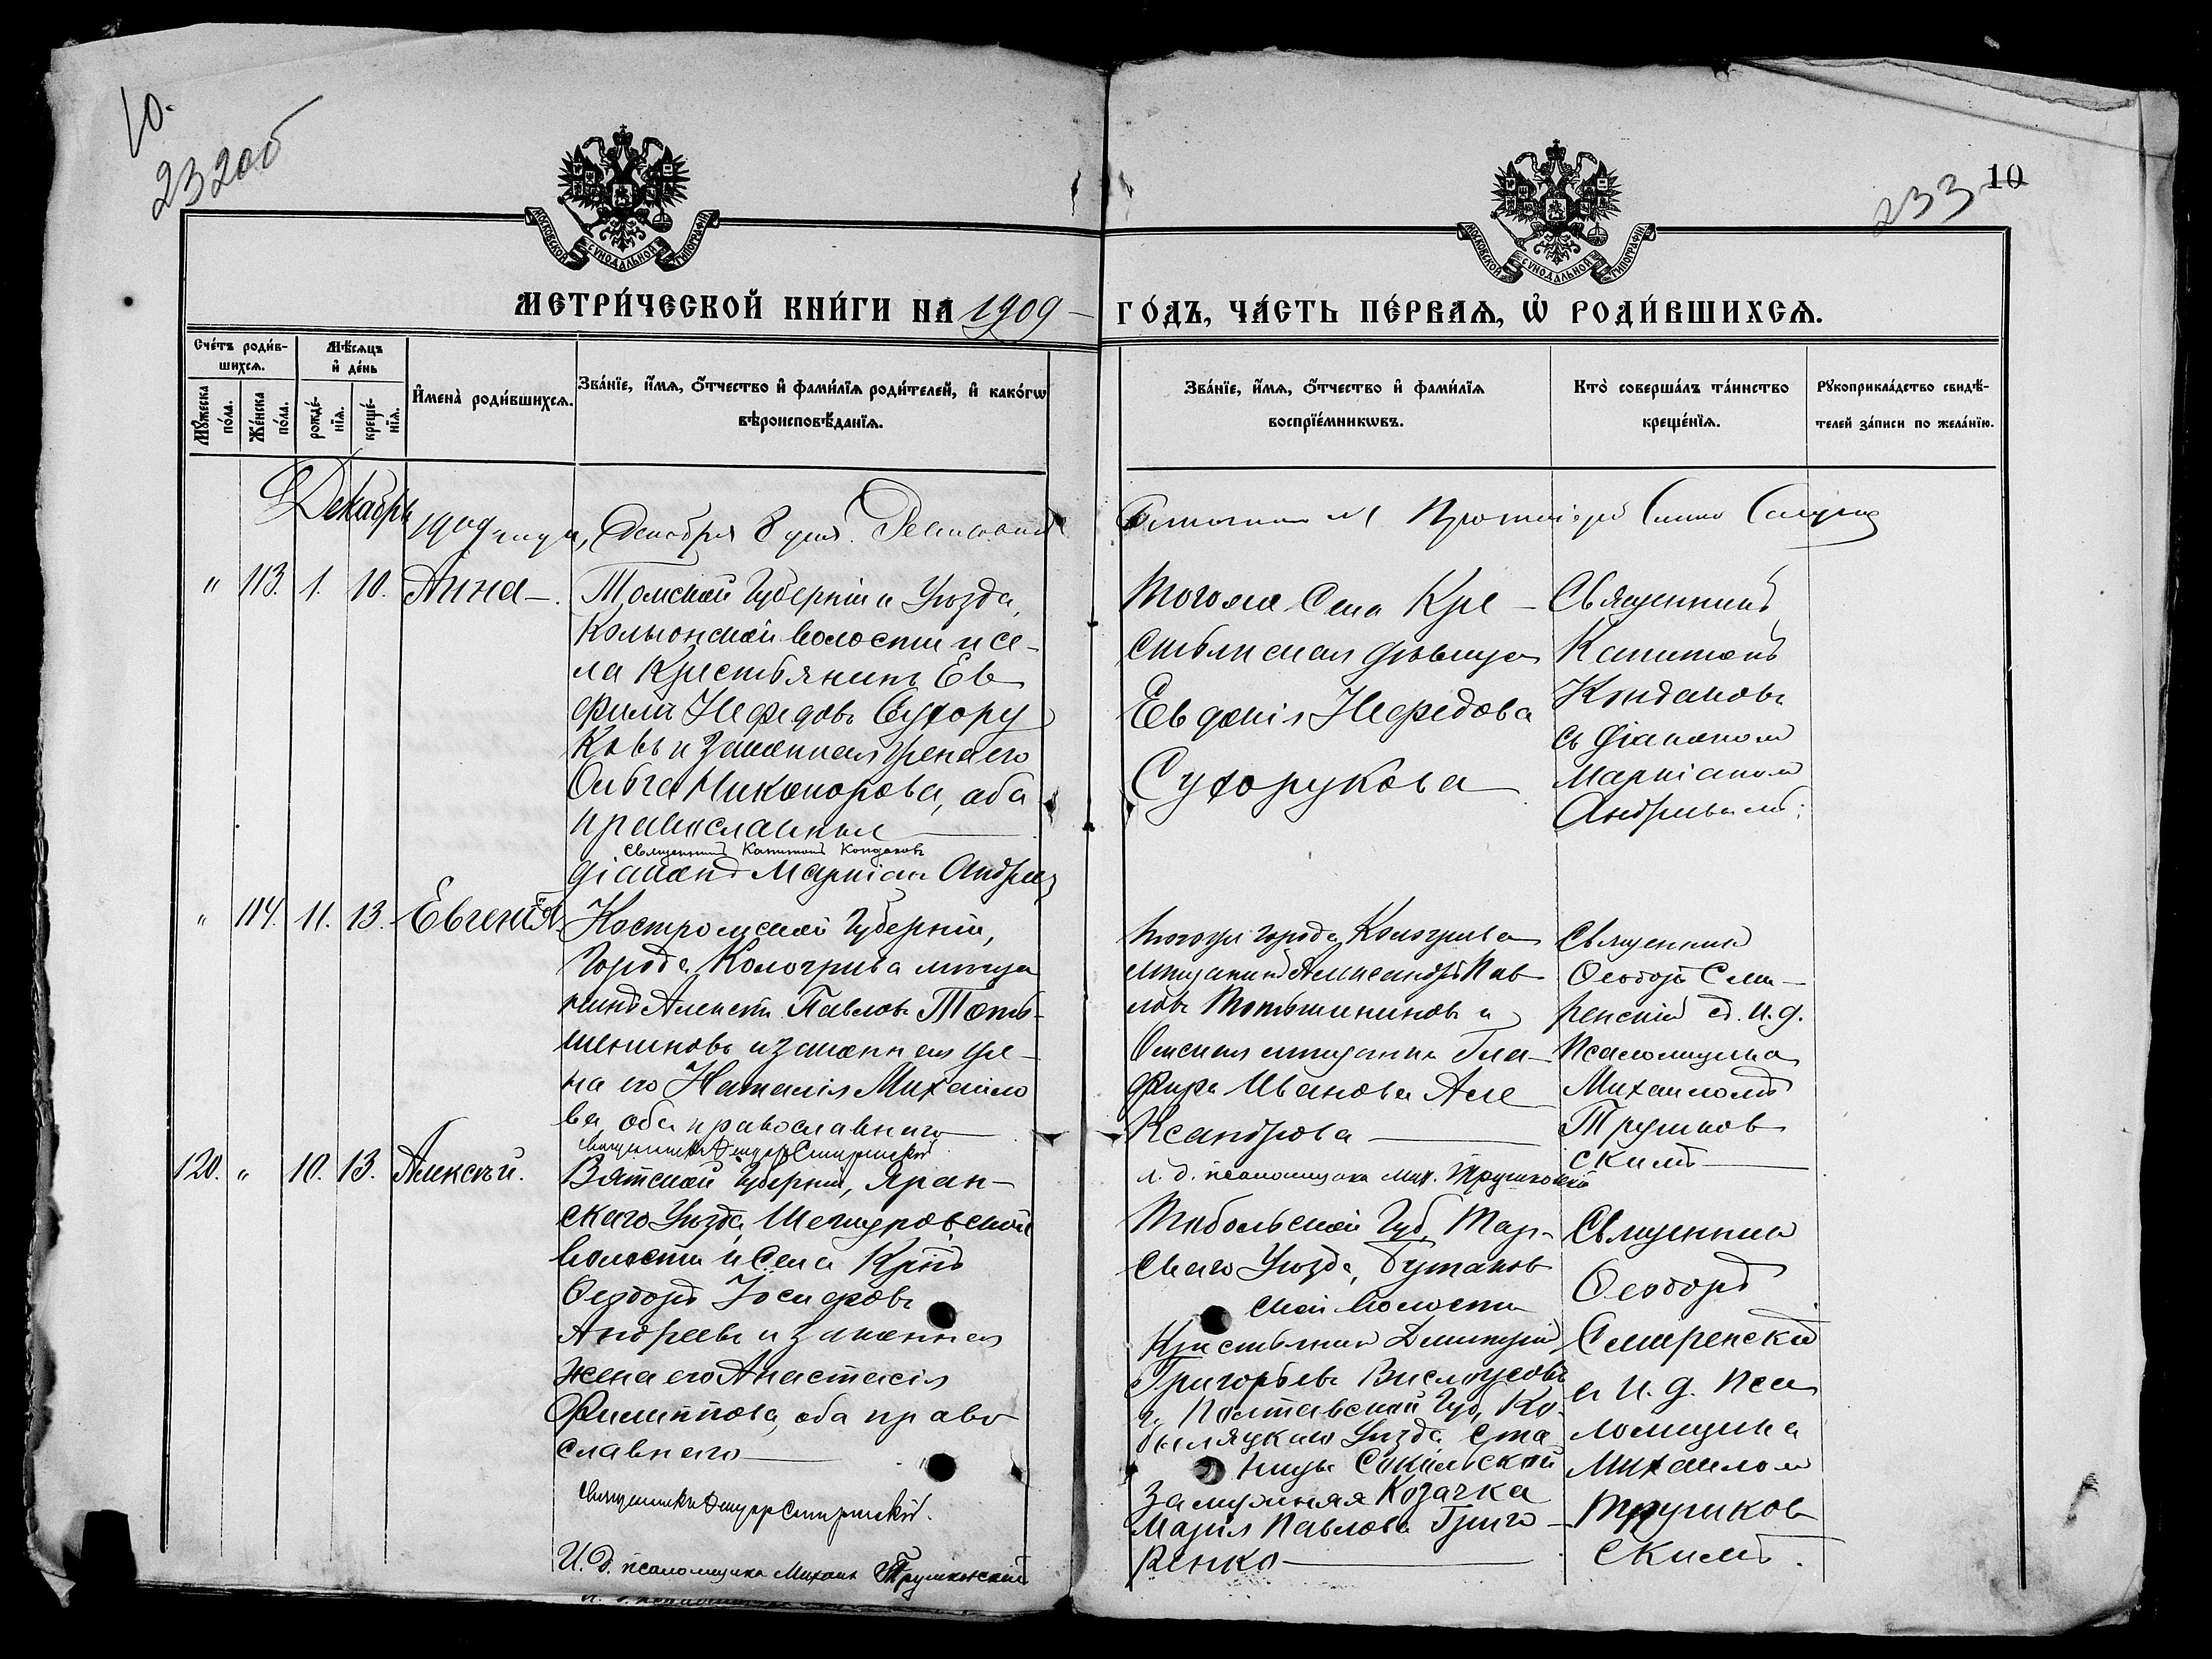 10.
232об
233
10
МОСКОВСКОЙ СУНОДАЛЬНОЙ ТИПОГРАФІИ
МОСКОВСКОЙ СУНОДАЛЬНОЙ ТИПОГРАФІИ
МЕТРИ́ЧЕСКОЙ КНИ́ГИ НА 1909
ГО́ДЪ, ЧА́СТЬ ПЕ́РВАѦ, Ѡ҆ РОДИ́ВШИХСѦ.
Сче́тъ роди́в-
шихсѧ.
Мѣ́сѧцъ
и҆ де́нь
Мꙋ́жеска
по́ла.
Же́нска
по́ла.
рожде́-
нїѧ.
креще́-
нїѧ.
И҆мена̀ роди́вшихсѧ.
Зва́нїе, и҆́мѧ, ѻ҆́тчество и҆ фами́лїѧ роди́телей, и҆ како́гѡ
вѣроисповѣ́данїѧ.
Зва́нїе, и҆́мѧ, ѻ҆́тчество и҆ фами́лїѧ
воспрїе́мникѡвъ.
Кто̀ соверша́лъ та́инство
креще́нїѧ.
Рꙋкоприкла́дство свидѣ́-
телей за́писи по жела́нїю.
Декабрь
1909 года, Декабря 8 дня.
Протоіерей
" 113. 1. 10. Анна
Томской Губерніи и Уѣзда,
Кольонской волости и се-
ла Крестьянинъ Ев
филъ Нефедовъ Сухору
ковъ и законная жена его
Ольга Никонорова, оба
православные
Священникъ Капитонъ Кондаковъ
Діаконъ Маркіан Андреев
Тогоже Села Кре-
стьянская дѣвица
Евдокія Нефедова
Сухорукова
Священникъ
Капитонъ
Кондаковъ
съ Діакономъ
Маркіаномъ
Андреевымъ.
" 114. 11. 13. Евгенія
Костромской Губерніи,
Города Кологрива мѣща
нинъ Алексѣй Павловъ Тоть-
мениновъ и законная же-
на его Наталія Михайло
ва, оба православнаго
Священникъ Ѳеодоръ Смиренскій
тогоже города Кологрива
мѣщанинъ Александръ Пав
ловъ Тотьмениновъ и
Омская мѣщанка Гла-
фира Иванова Але
ксандрова
и. д. псаломщика Мих. Трушковскій
Священникъ
Ѳеодоръ Сми-
ренскій съ и. д.
Псаломщика
Михаиломъ
Трушков
скимъ
120. " 10. 13. Алексѣй.
Вятской Губерніи, Яран-
скаго Уѣзда,
волости и села Кр-нъ
Ѳеодоръ Іосифовъ
Андреевъ и законная
жена его Анастасія
Филиппова, оба право
славнаго
Священникъ Ѳеодоръ Смиренскій.
И. д. псаломщика Михаил Трушковскій
Тобольской Губ. Тар-
скаго Уѣзда, Бутаков
ской волости
Крестьянин Димитрій
Григорьевъ Вислоусовъ
и Полтавской Губ, Ко-
быляцкаго Уѣзда Ста
ницы Сокольской
замужняя Козачка
Марія Павлова Григо-
ренко
Священник
Ѳеодоръ
Смиренскій
съ и. д. Пса
ломщика
Михаилом
Трушков
скимъ.